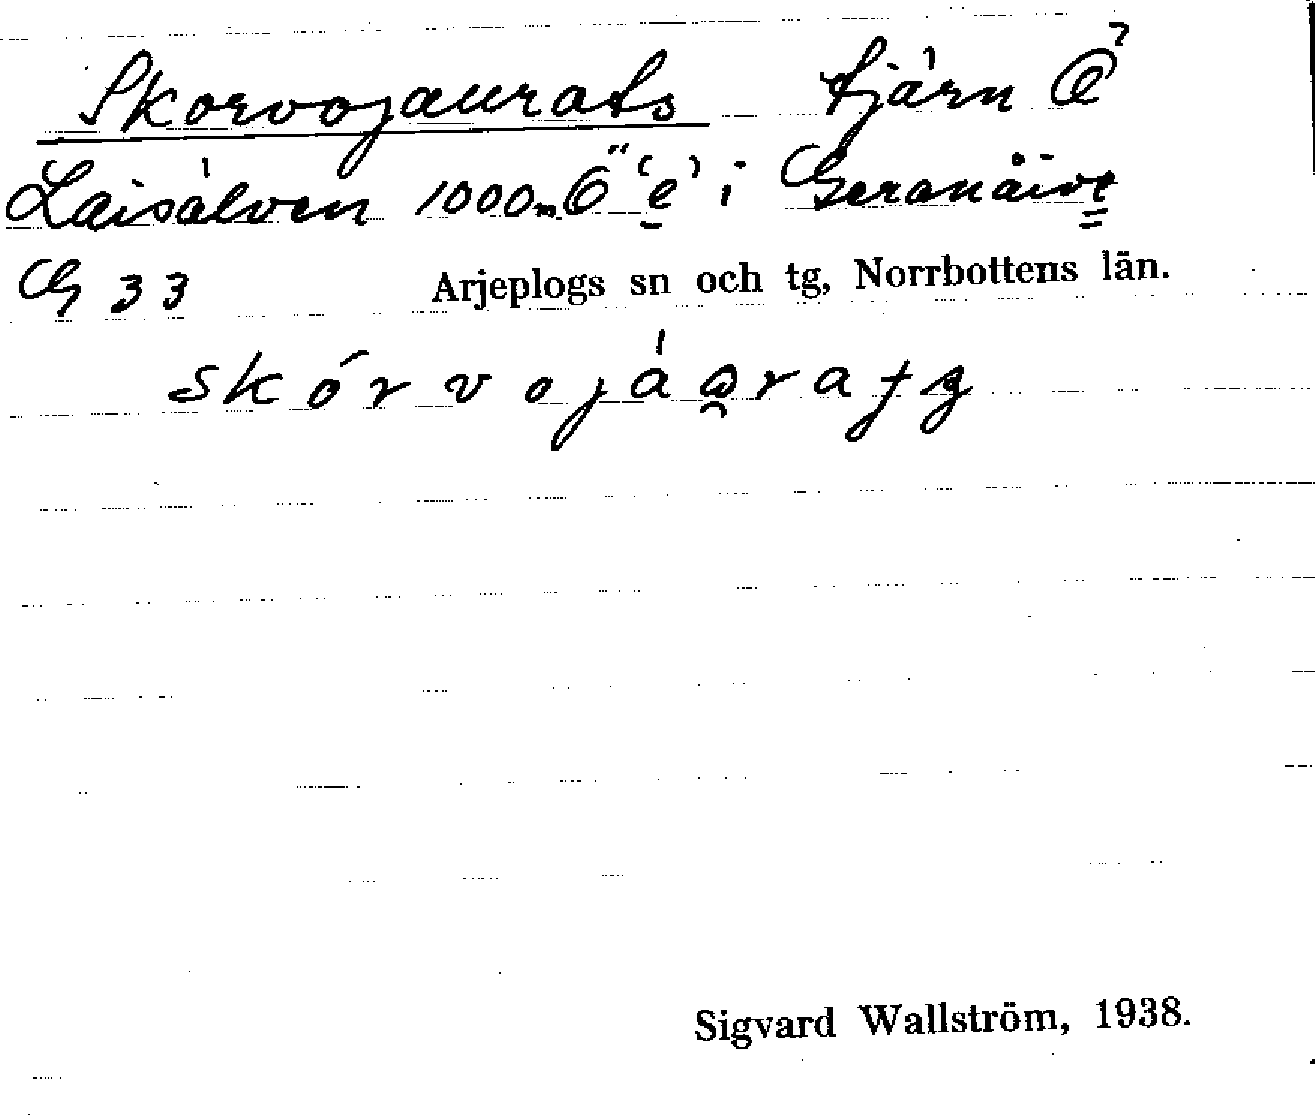 Skorvojaurats tjärn
Laisälven 1000 m Ö "e" i Geranåive
G 33 Arjeplogs sn och tg, Norrbottens län.
skórvojáu̯rats
Sigvard Wallström, 1938.